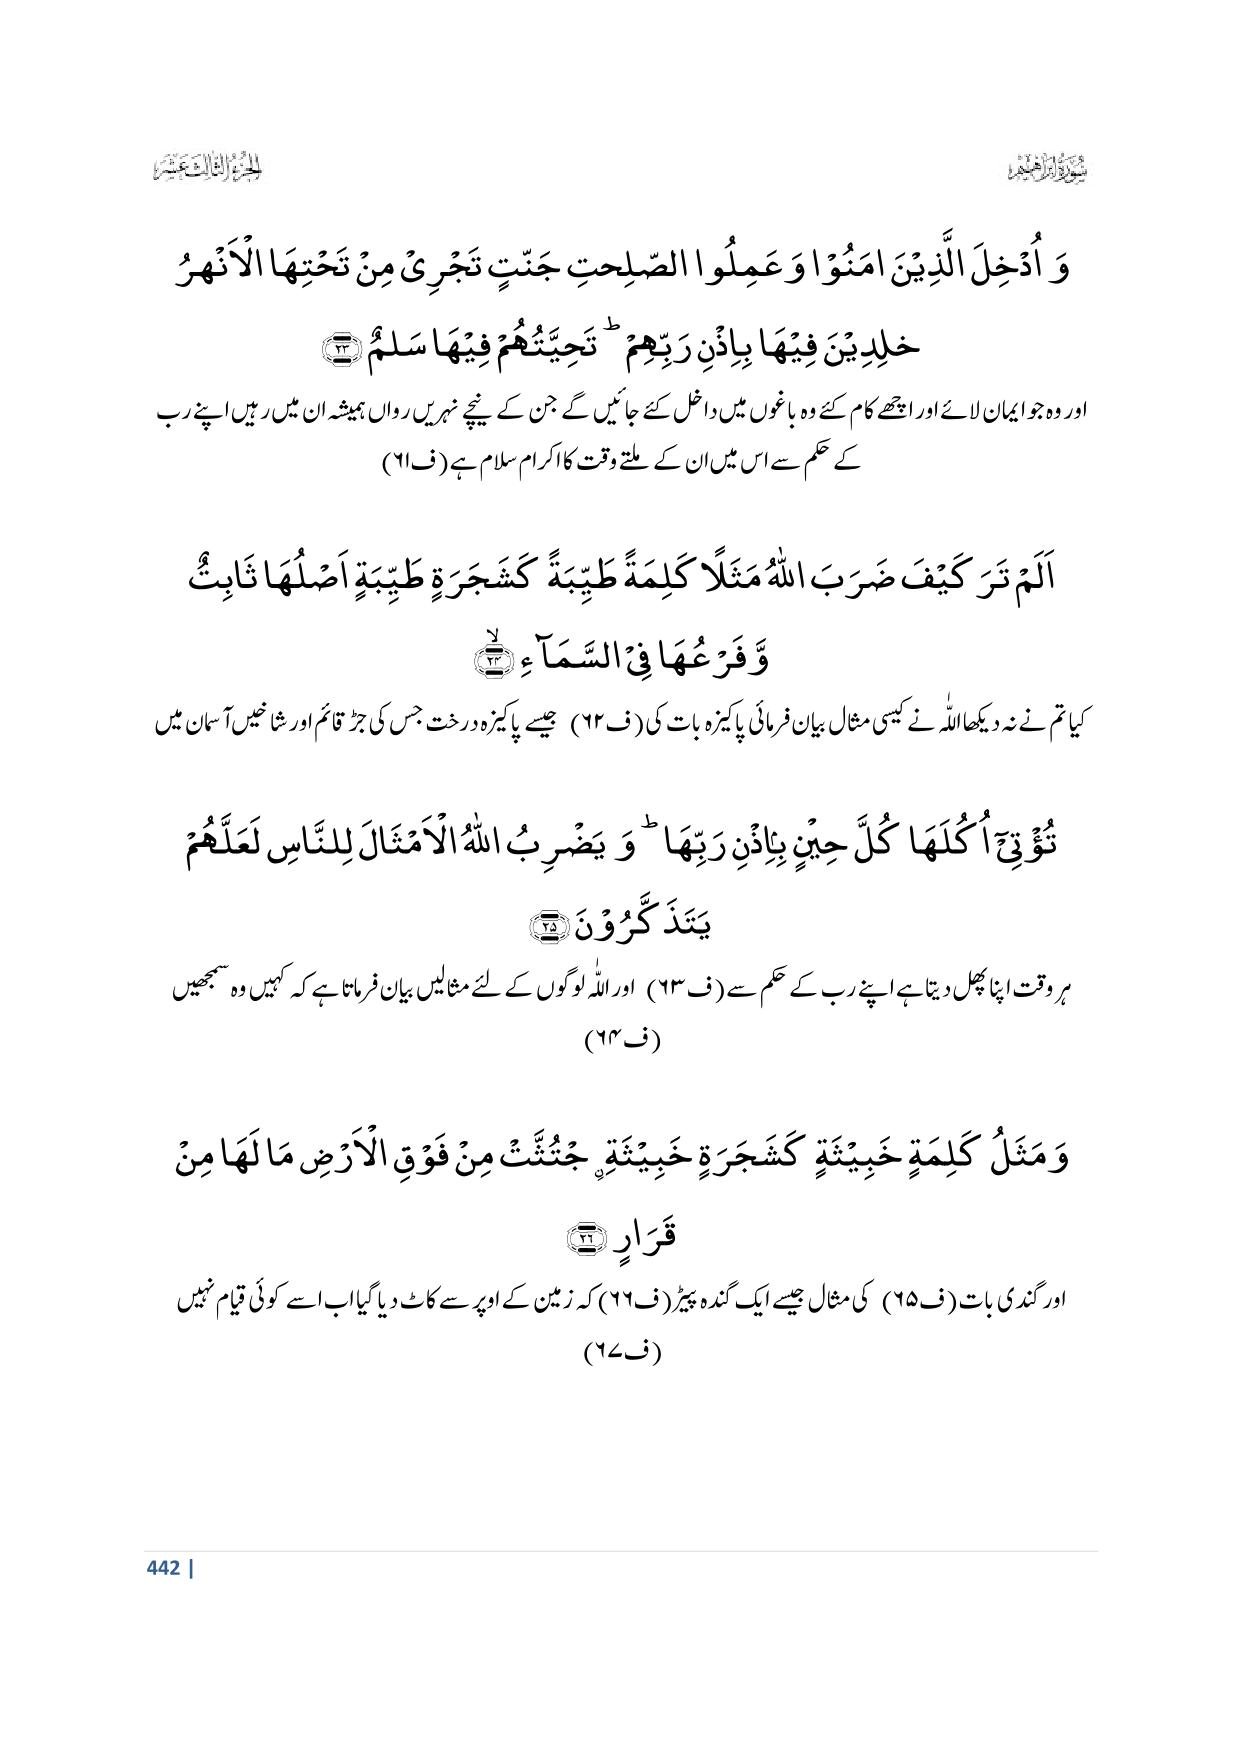 سُوْرَةُ اِبْرَاهِيْم
الجزء الثالث عشر
وَ اُدْخِلَ الَّذِيْنَ امَنُوْا وَ عَمِلُوا الصّلِحتِ جَنّتٍ تَجْرِىْ مِنْ تَحْتِهَا الْاَنْهرُ
خلِدِيْنَ فِيْهَا بِاِذْنِ رَبِّهِمْ ؕ تَحِيَّتُهُمْ فِيْهَا سَلمٌ ﴿۲۳﴾
اور وہ جو ایمان لائے اور اچھے کام کئے وہ باغوں میں داخل کئے جائیں گے جن کے نیچے نہریں رواں ہمیشہ ان میں رہیں اپنے رب
کے حکم سے اس میں ان کے ملتے وقت کا اکرام سلام ہے (ف۶۱)
اَلَمْ تَرَ كَيْفَ ضَرَبَ اللهُ مَثَلًا كَلِمَةً طَيِّبَةً كَشَجَرَةٍ طَيِّبَةٍ اَصْلُهَا ثَابِتٌ
وَّ فَرْعُهَا فِى السَّمَآءِ ﴿ۙ۲۴﴾
کیا تم نے نہ دیکھا اللّٰہ نے کیسی مثال بیان فرمائی پاکیزہ بات کی (ف۶۲) جیسے پاکیزہ درخت جس کی جڑ قائم اور شاخیں آسمان میں
تُؤْتِىْۤ اُكُلَهَا كُلَّ حِيْنٍ بِاِذْنِ رَبِّهَا ؕ وَ يَضْرِبُ اللهُ الْاَمْثَالَ لِلنَّاسِ لَعَلَّهُمْ
يَتَذَكَّرُوْنَ ﴿۲۵﴾
ہر وقت اپنا پھل دیتا ہے اپنے رب کے حکم سے (ف۶۳) اور اللّٰہ لوگوں کے لئے مثالیں بیان فرماتا ہے کہ کہیں وہ سمجھیں
(ف۶۴)
وَ مَثَلُ كَلِمَةٍ خَبِيْثَةٍ كَشَجَرَةٍ خَبِيْثَةِ ۣ جْتُثَّتْ مِنْ فَوْقِ الْاَرْضِ مَا لَهَا مِنْ
قَرَارٍ ﴿۲۶﴾
اور گندی بات (ف۶۵) کی مثال جیسے ایک گندہ پیڑ (ف۶۶) کہ زمین کے اوپر سے کاٹ دیا گیا اب اسے کوئی قیام نہیں
(ف۶۷)
442 |